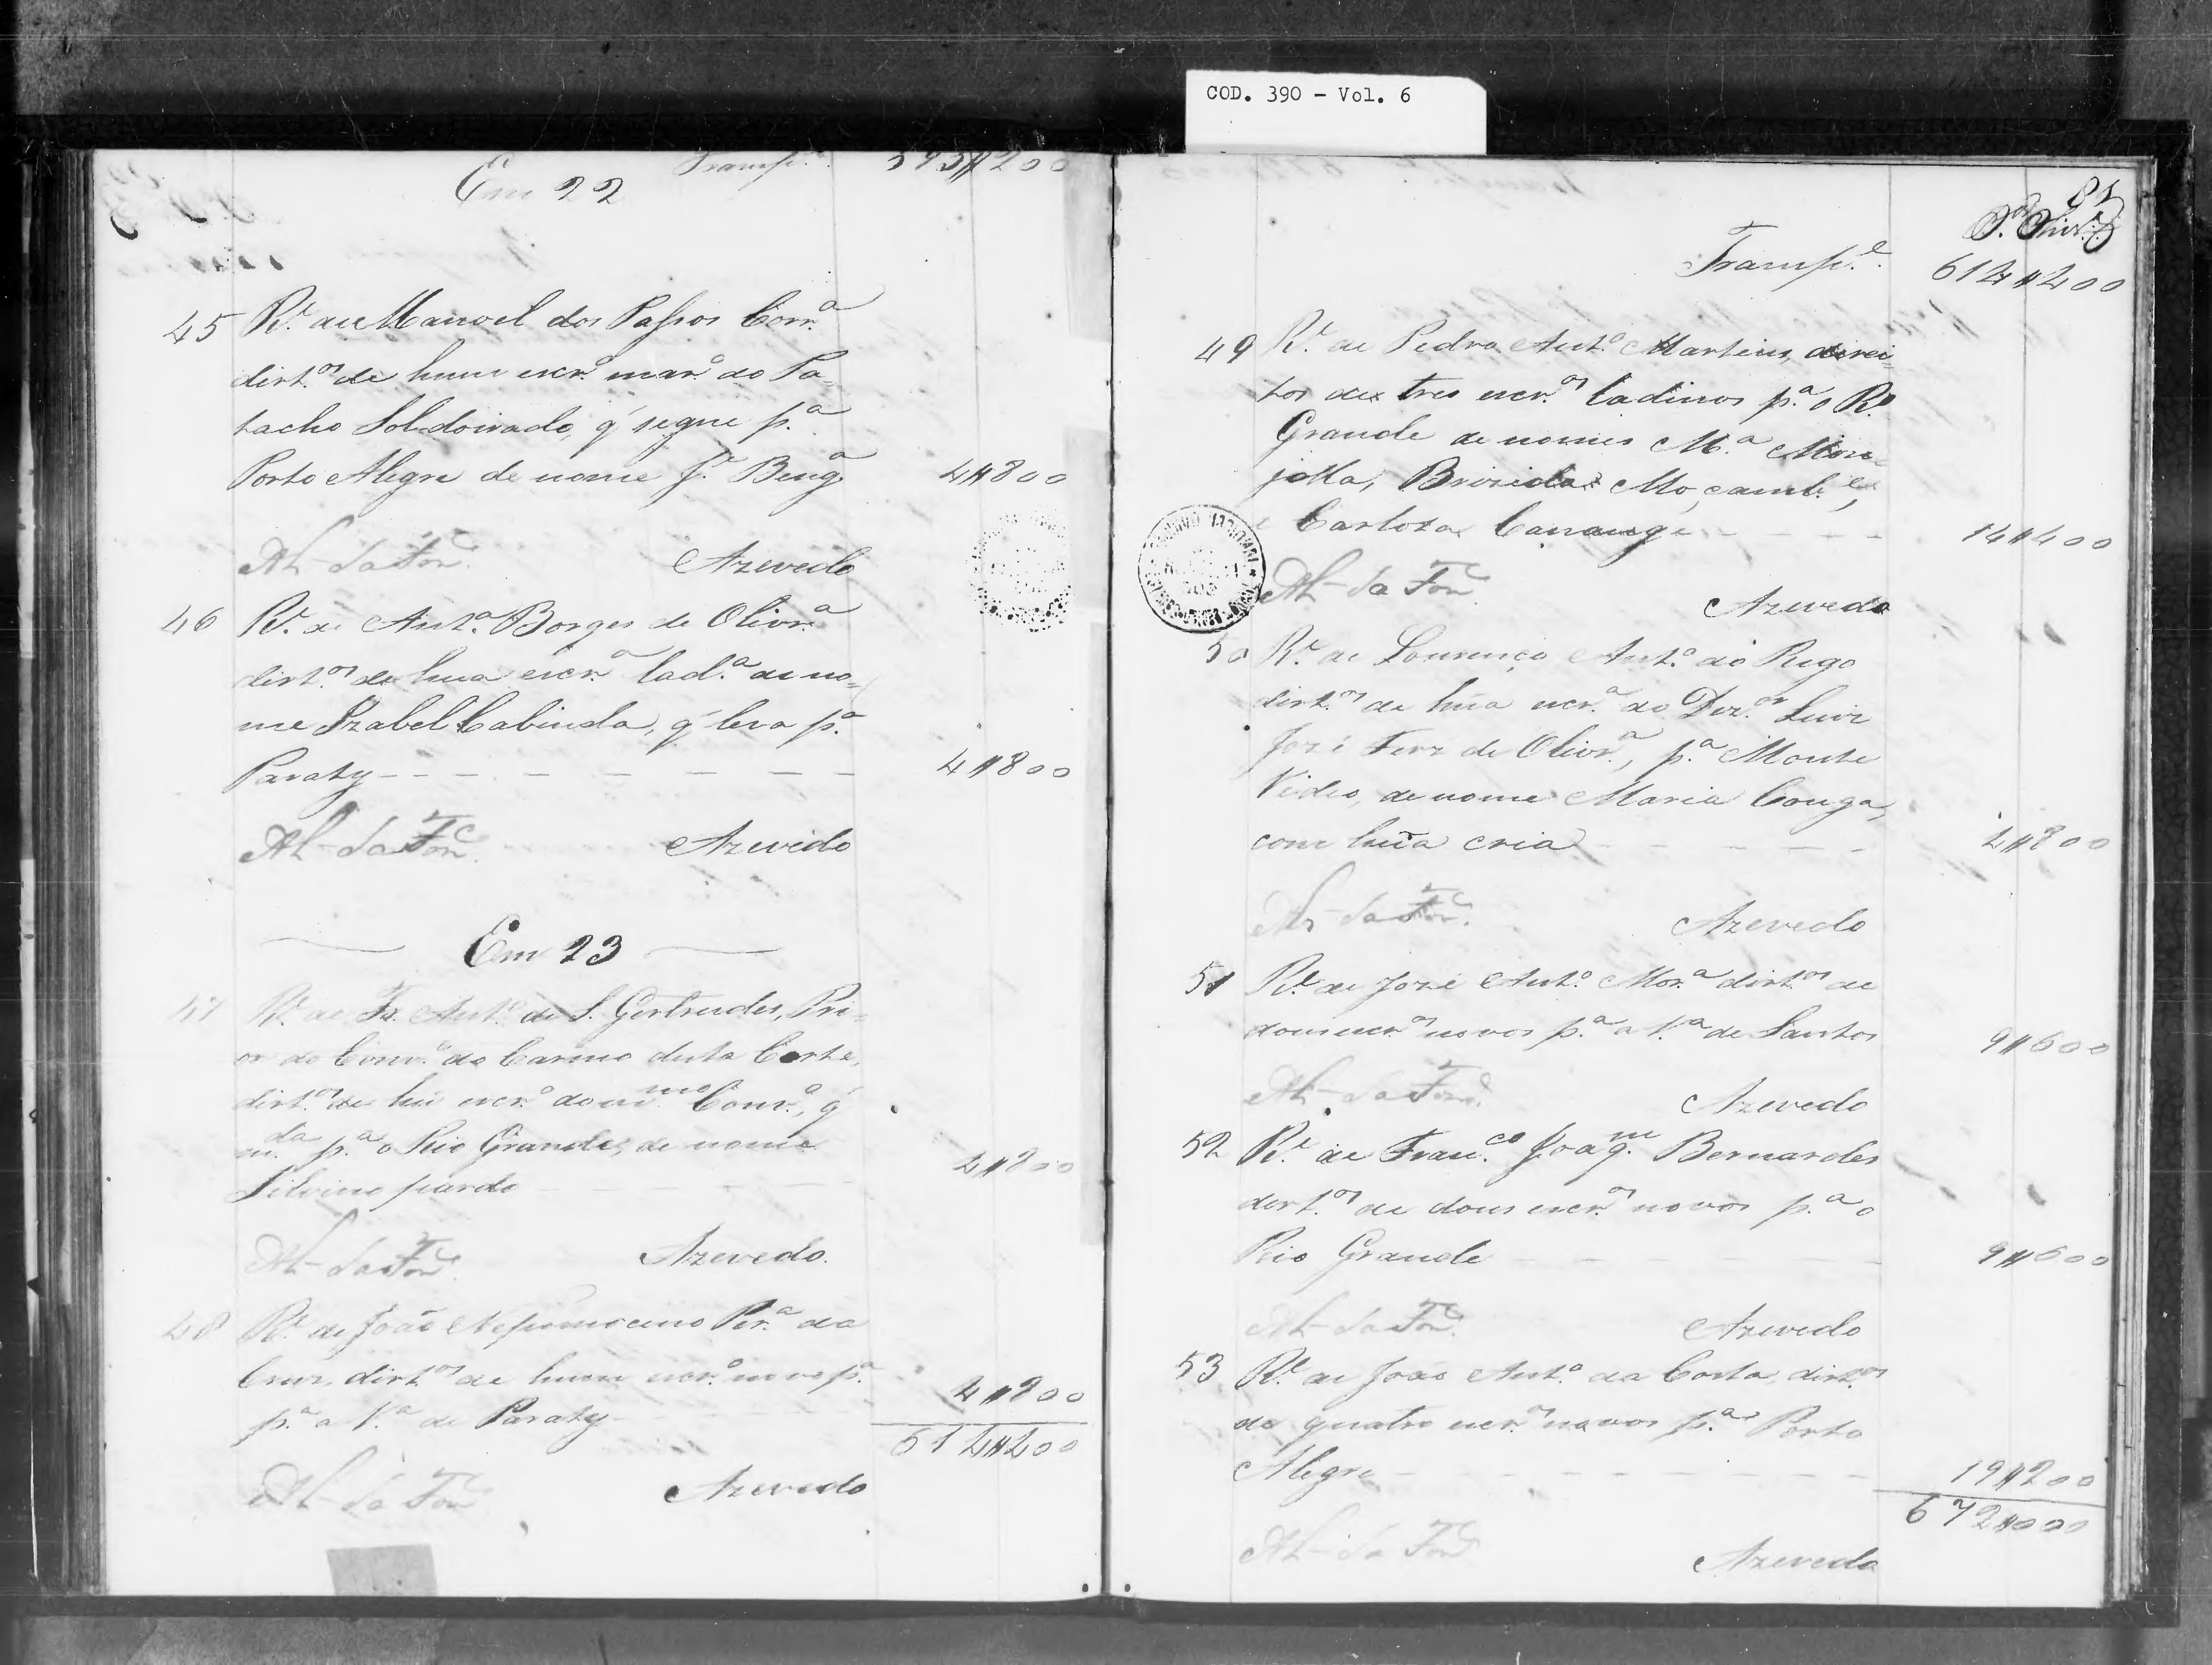 COD. 390 - Vol. 6
Transp.e 595$200
Em 22
45 R.e de Manoel dos Passos Corr.a
dirt.os de hum escr.o mar.o do Pa-
tacho Sol doirado, q' segue p.a
Porto Alegre de nome J.e Beng.a 4$800
Azevedo
46 R.e de Ant.o Borges de Olivr.a
dirt.os de hua escr.a lad.a de no-
me Izabel Cabinda, q' leva p.a
Paraty - - - - - - - 4$800
Azevedo
Em 23
47 R.e de Fr. Ant.o de S. Gertrudes, Pri-
or do Conv.o do Carmo desta Corte,
dirt.os de hu escr.o do m.mo Conv.o, q'
m.da p.a o Rio Grande, de nome
Silvino pardo - - - - 4$800
Azevedo.
48 R.e de João Nepomoceno Per.a da
Cruz, dirt.os de hum escr.o novo p.a
p.a a V.a de Paraty 4$800
614$400
Azevedo
81
Transp.e 614$400
49 R.e de Pedro Ant.o Martins, direi-
tos de tres escr.os ladinos p.a o R.o
Grande de nomes M.a Mon-
jolla, Brizida Moçamb.e,
e Carlota Cassange - - - - 14$400
Azevedo
50 R.e de Lourenço Ant.o do Rego
dirt.os de hũa escr.a do Dez.or Luiz
José Ferz de Olivr.a, p.a Monte
Video, de nome Maria Conga,
com hũa cria - - - - - 4$800
Azevedo
51 R.e de José Ant.o Mor.a dirt.os de
dous escr.os novos p.a a V.a de Santos 9$600
Azevedo
52 R.e de Fran.co Joaq.m Bernardes
dirt.os de dous escr.os novos p.a o
Rio Grande - - - - - 9$600
Azevedo
53 R.e de João Ant.o da Costa, dirt.os
de quatro escr.os novos p.a Porto
Alegre - - - - - - - 19$200
672$000
Azevedo